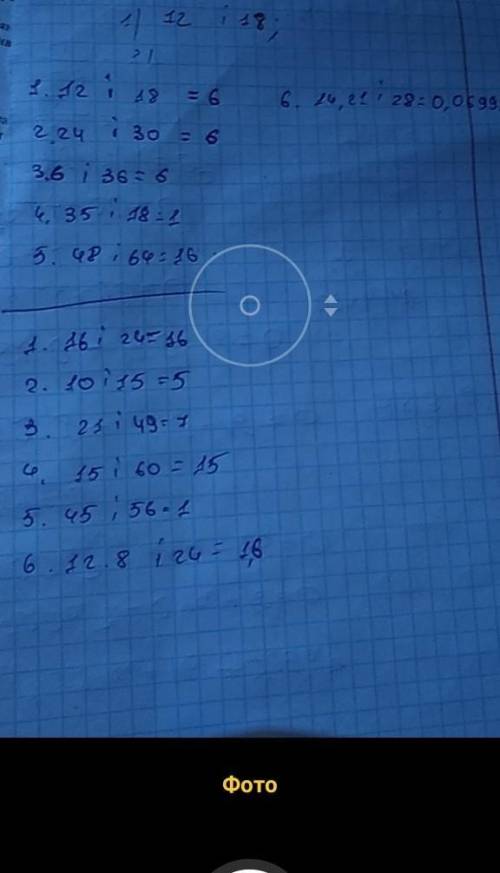 1) 12 і 18;
1. 12 і 18 = 6
6. 14,21 і 28=0,0699
2. 24 і 30 = 6
3.6 і 36= 6
4. 35 і 18=1
5. 48 і 64=16
1. 16 і 24=16
2. 10 і 15 =5
3. 21 і 49=7
4. 15 і 60 = 15
5. 45 і 56=1
6. 12.8 і 24 = 1,6
Фото